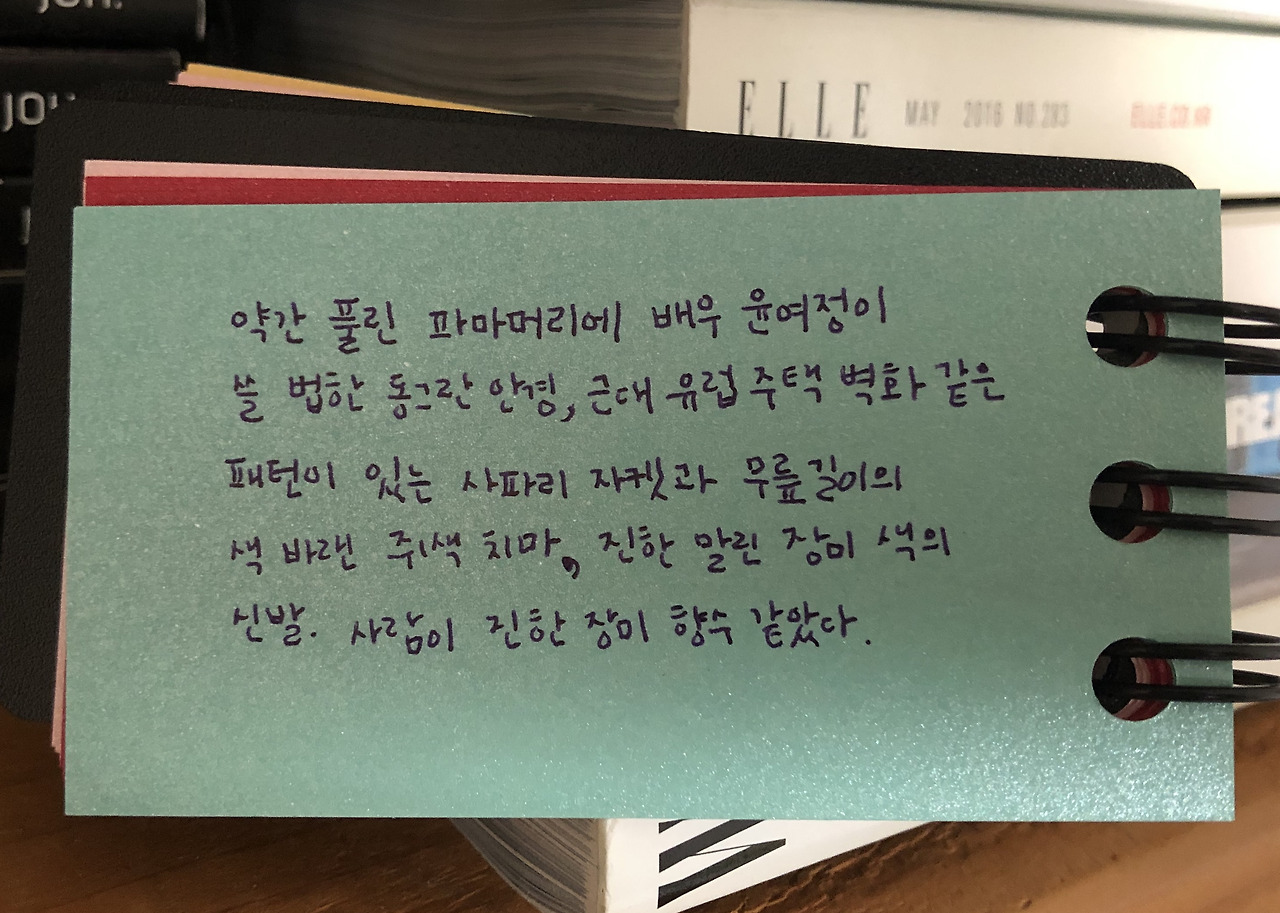 JOH.
JOH
ELLE MAY 2016 NO.283 ELLE.CO.KR
약간 풀린 파마머리에 배우 윤여정이
쓸 법한 동그란 안경, 근대 유럽 주택 벽화 같은
패턴이 있는 사파리 자켓과 무릎길이의
색 바랜 쥐색 치마, 진한 말린 장미 색의
신발. 사람이 진한 장미 향수 같았다.